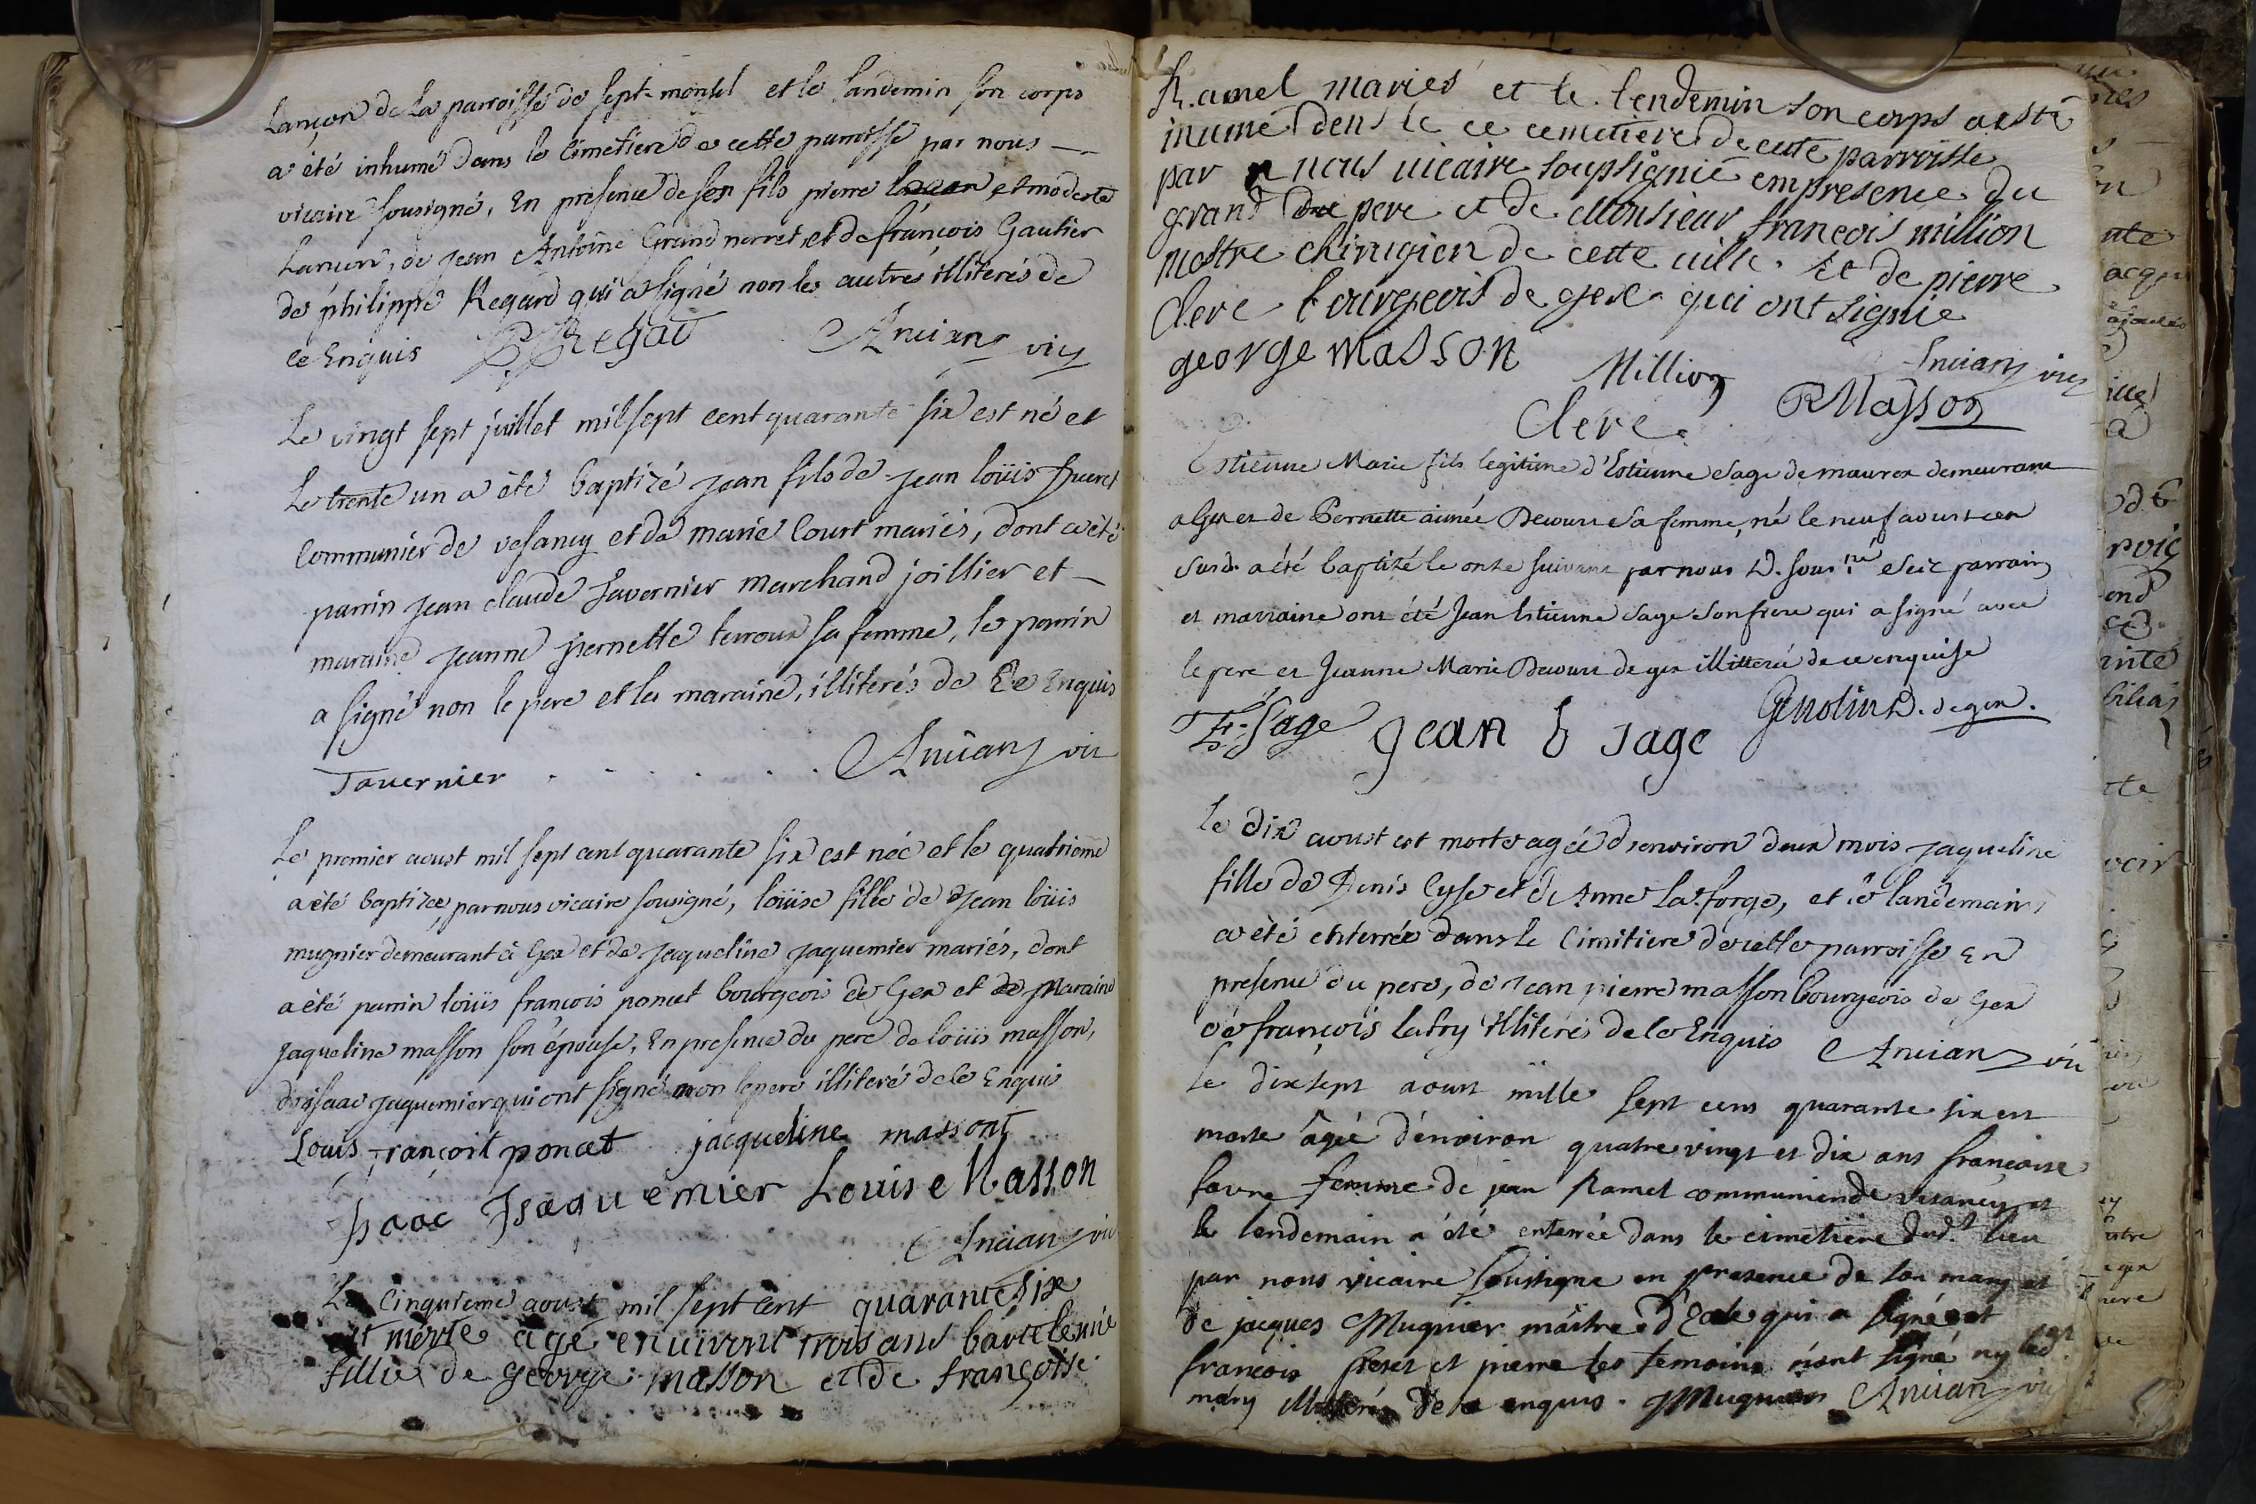 Lançon de La parroisse de sept-monsel et le landemin son corps
a été inhumé dans le cimetiere de cette parroisse par nous —
vicaire sousigné, En presence de son fils pierre et modeste
Lançon, de jean Antoine Grand perret, et de françois Gautier
de philippe Regard qui a signé non les autres illiterés de
ce Enquis PRegad Ancian vic
Le vingt sept juillet mil sept cent quarante six est né et
Le trente un a été baptizé jean fils de jean loüis
communier de vesancy et de marie Court mariés, dont a été
parrin jean claude tavernier marchand joillier et —
maraine jeanne pernette terroux sa femme, le parrin
a signé non le pere et la maraine, illiterés de Ce Enquis
Tavernier . . . . . . Ancian vic
Le premier aoust mil sept cent quarante six est née et le quatrieme
a été baptizée, par nous vicaire sousigné, loüise fille de jean loüis
mugnier demeurant à Gex et de jaqueline jaquemier mariés, dont
a été parrin loüis françois poncet bourgeois de Gex et Maraine
jaqueline masson son épouse, En presence du pere de loüis masson,
d'isaac jaquemier qui ont signé non le pere illiteré de ce Enquis
Louis françoit poncet jacqueline massont
Isaac Jsaquemier Louise Masson
Ancian vic
Le Cinquieme aoust mil sept cent quarante six
est morte agé enuiront trois ans bartelemie
fillie de george masson et de françoise
Ramel mariés et le lendemin son corps a esté
inumé dens le ce cemetiere de cette parroisse
par nous uicaire soupsignié em presence du
grand pere et de Monsieur françois million
mestre chirugien de cette uille. et de pierre
Clerc bourgeois de gex qui ont signié
george masson Million Ancian vic
Clerc RMasson
Estienne Marie fils legitime d'Estienne Sage de maurex demeurant
a Gex et de Pernette aimée Decourt Sa femme, né le neuf aoust en
Susd. a été baptizé le onze suivant par nous D. sous.né Ses parrain
et marraine ont été Jean Estienne Sage Son frere qui a signé avec
le pere et Jeanne Marie Decourt de gex illitteré de ce enquise
E: Sage jean E sage D. de gex.
Le dix aoust est morte agée d'environ deux mois jaqueline
fille de Denis et d'Anne La forge, et le landemain
a été enterrée dans le Cimitiere de cette parroisse En
presence du pere, de jean pierre masson bourgeois de Gex
de françois illiterés de ce Enquis Ancian vic
Le dix sept aoust mille sept cens quarante six est
morte âgée d'environ quatre vingt et dix ans francoise
favre femme de jean Ramel communier de vesancy et
le lendemain a été enterrée dans le cimetiere dud.t lieu
par nous vicaire soussigné en presence de son mary et
de jacques Mugnier maître d'Ecole qui a signé et
francois et pierre les temoins n'ont signé ny led.
mary de ce enquis. JMugnier Ancian vic